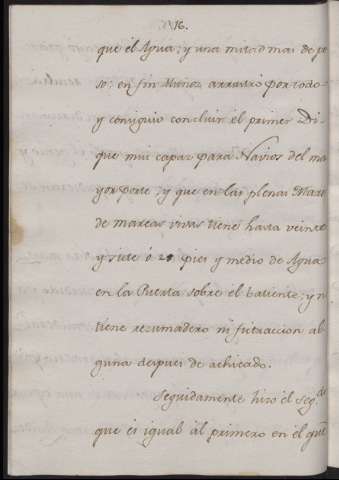 16.
que el Agua; y una mitad mas de pe
so: en fin Muñoz arrastró por todo
y consiguio concluir el primer Di-
que mui capaz para Navios del ma
yor porte; y que en las plenas Mares
de mareas vivas tiene hasta veinte
y siete ó pies y medio de Agua
en la Puerta sobre el batiente; y ni
tiene rezumadero ni filtracion al
guna despues de achicado.
Seguidamente hizo el seg.do
que es igual al primero en el